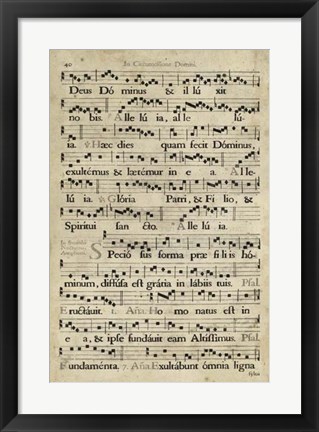 40 In Circumcisione Domini.
Deus Dó minus & il lú xit
no bis. Alle lú ia, al le lú-
ia. ℣ Hæc dies quam fecit Dóminus,
exultémus & lætémur in e a. Al le-
lú ia. Glória Patri, & Fí lio, &
Spiritui san cto. Al le lú ia.
S Peció sus forma præ fi li is hó-
minum, diffúsa est grátia in lábiis tuis. Psal.
Eructáuit. 1. Aña. Ho mo natus est in
e a, & ipse fundáuit eam Altíssimus. Psal.
Fundaménta. 7. Aña. Exultábunt ómnia ligna